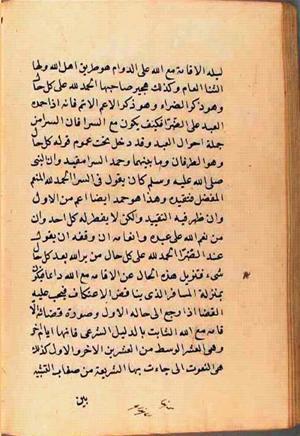 ليله الاقامة مع الله على الدوام هو طريق اهل الله ولها
الثنا العام وكذلك هجير صاحبها الحمد لله على كل حال
وهو ذكر الضراء وهو ذكر الاعم الاتم فانه اذا حمده
العبد على الضرا فكيف يكون مع السرا فان السرا من
جملة احوال العبد وقد دخل تحت عموم قوله كل حال
وهو الطرفان وما بينهما وحمد السرا مقيد وان النبى
صلى الله عليه وسلم كان يقول فى السرا الحمد لله المنعم
المفضل فتقيده وهذا هو حمد ايضا اعم من الاول
وان ظهر فيه التقييد ولكن لا يفطن له كل احد وان
من نعم الله على عبده وانعامه ان وفقه ان يقول
عند الضرا الحمد لله على كل حال من
شىء فتنزيل هذه الحال عن الاقامة مع الله دايما
بمنزلة المسافر الذى يناقض الاعتكاف فيجب عليه
القضا اذا رجع الى حاله الاول وصورة قضائه
قامة مع الله الثابت بالدليل الشرعى فانها ايام اخر
وهى العشر الوسط من العشرين الاخر والاول كذلك
هى النعوت التى جاءت بها الشريعة من صفات التشبيه
بين